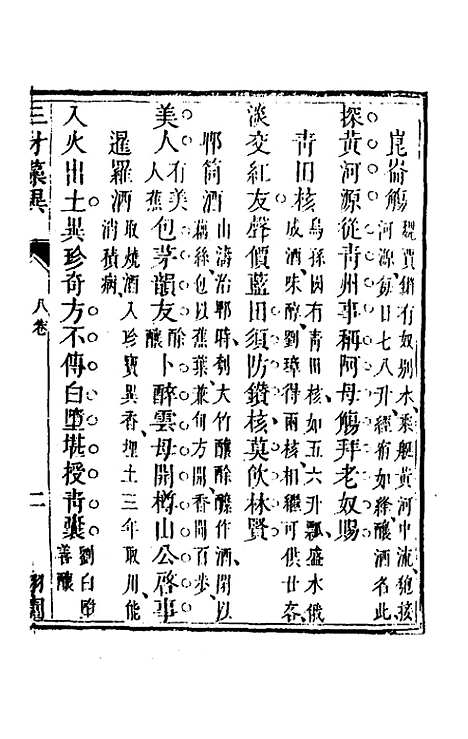 崑崙觴 魏賈鏘有奴別水乘艇黃河中流匏接
河源每日七八升經宿如絳釀酒名此
探黃河源從靑州事稱阿母觴拜老奴賜
靑田核 烏孫國有靑田核如五六升瓢盛水俄
成酒味醇劉璋得兩核相繼可供廿客
淡交紅友聲價藍田須防鑽核莫飮林賢
郫筒酒 山濤治郫時刳大竹釀酴醾作酒閉以
藕絲包以蕉葉兼旬方開香聞百步
美人 有美人蕉 包芽韻友 酴釀 卜醉雲母開樽山公啓事
暹羅酒 取燒酒入珍寶異香埋土三年取用能
消積病
入火出土異珍奇方不傳白墮堪授靑囊 劉白墮善釀
三才藻異
八卷
二